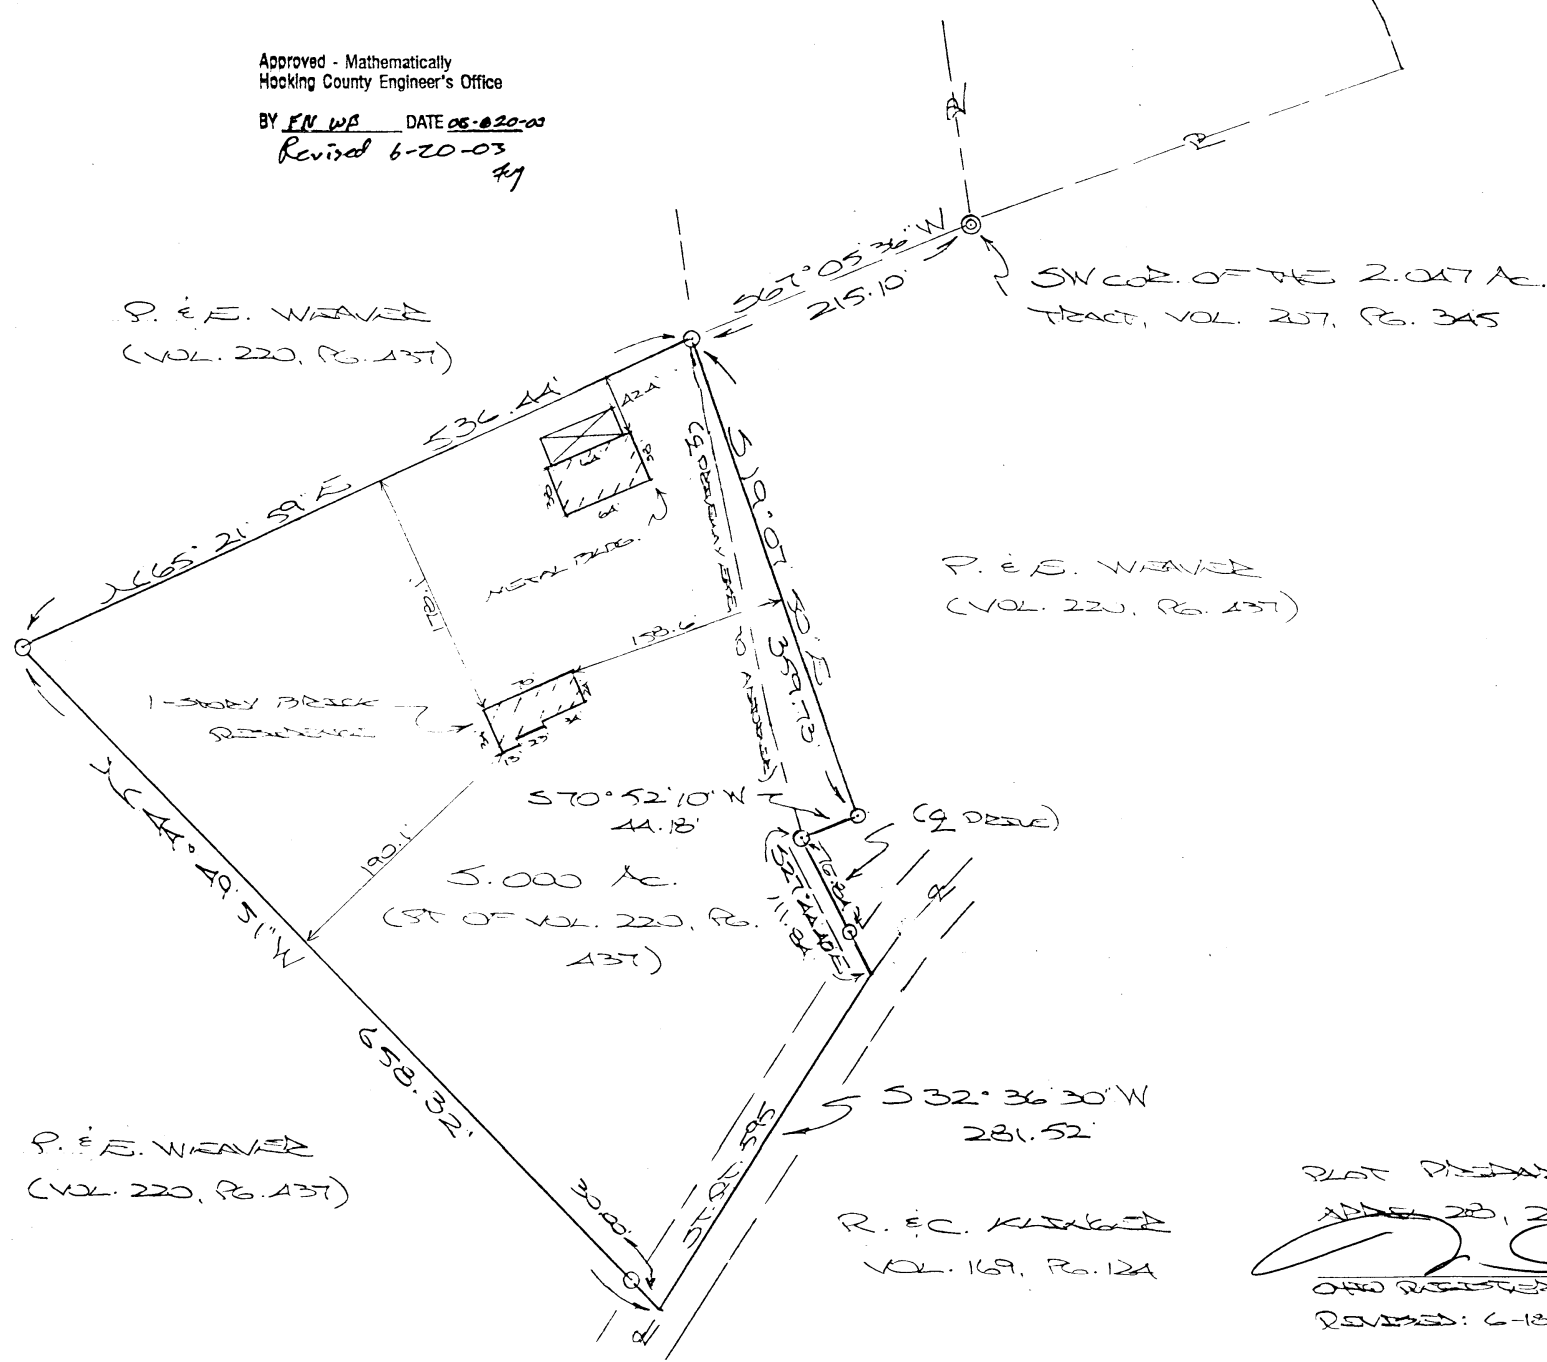 Approved - Mathematically
Hocking County Engineer's Office
BY FN WB DATE
Revised 6-20-03
S67°05'36"W
215.10'
SW COR. OF THE 2.047 AC.
TRACT, VOL. 207, PG. 345
P. & E. WEAVER
(VOL. 220, PG. 437)
536.44'
N65°21'59"E
42.4'
64'
METAL BLDG.
178.1'
158.6'
(℄ DRIVEWAY ESM'T TO
S19°07'50"E
359.73'
P. & E. WEAVER
(VOL. 220, PG. 437)
1-STORY BRICK
RESIDENCE
70'
34'
23'
13'
S70°52'10"W
44.18'
(℄ DRIVE)
76.84'
S27°44'40"E
111.84'
190.1'
5.000 AC.
(PT OF VOL. 220, PG.
437)
N44°49'51"W
658.32'
30.00'
ST. RT. 595
S32°36'30"W
281.52'
P. & E. WEAVER
(VOL. 220, PG. 437)
R. & C. KLINGER
VOL. 169, PG. 124
PLAT PREPAR
APRIL 28, 2
OHIO REGISTERE
REVISED: 6-18